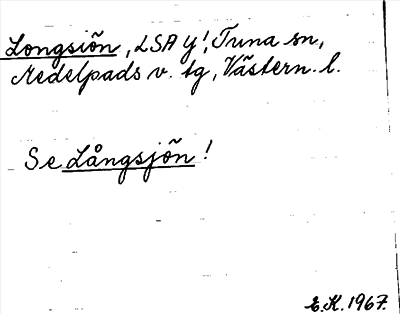 Longsiön, LSA Y!, Tuna sn,
Medelpads v. tg, Västern. l.
Se Långsjön!
E.K. 1967.